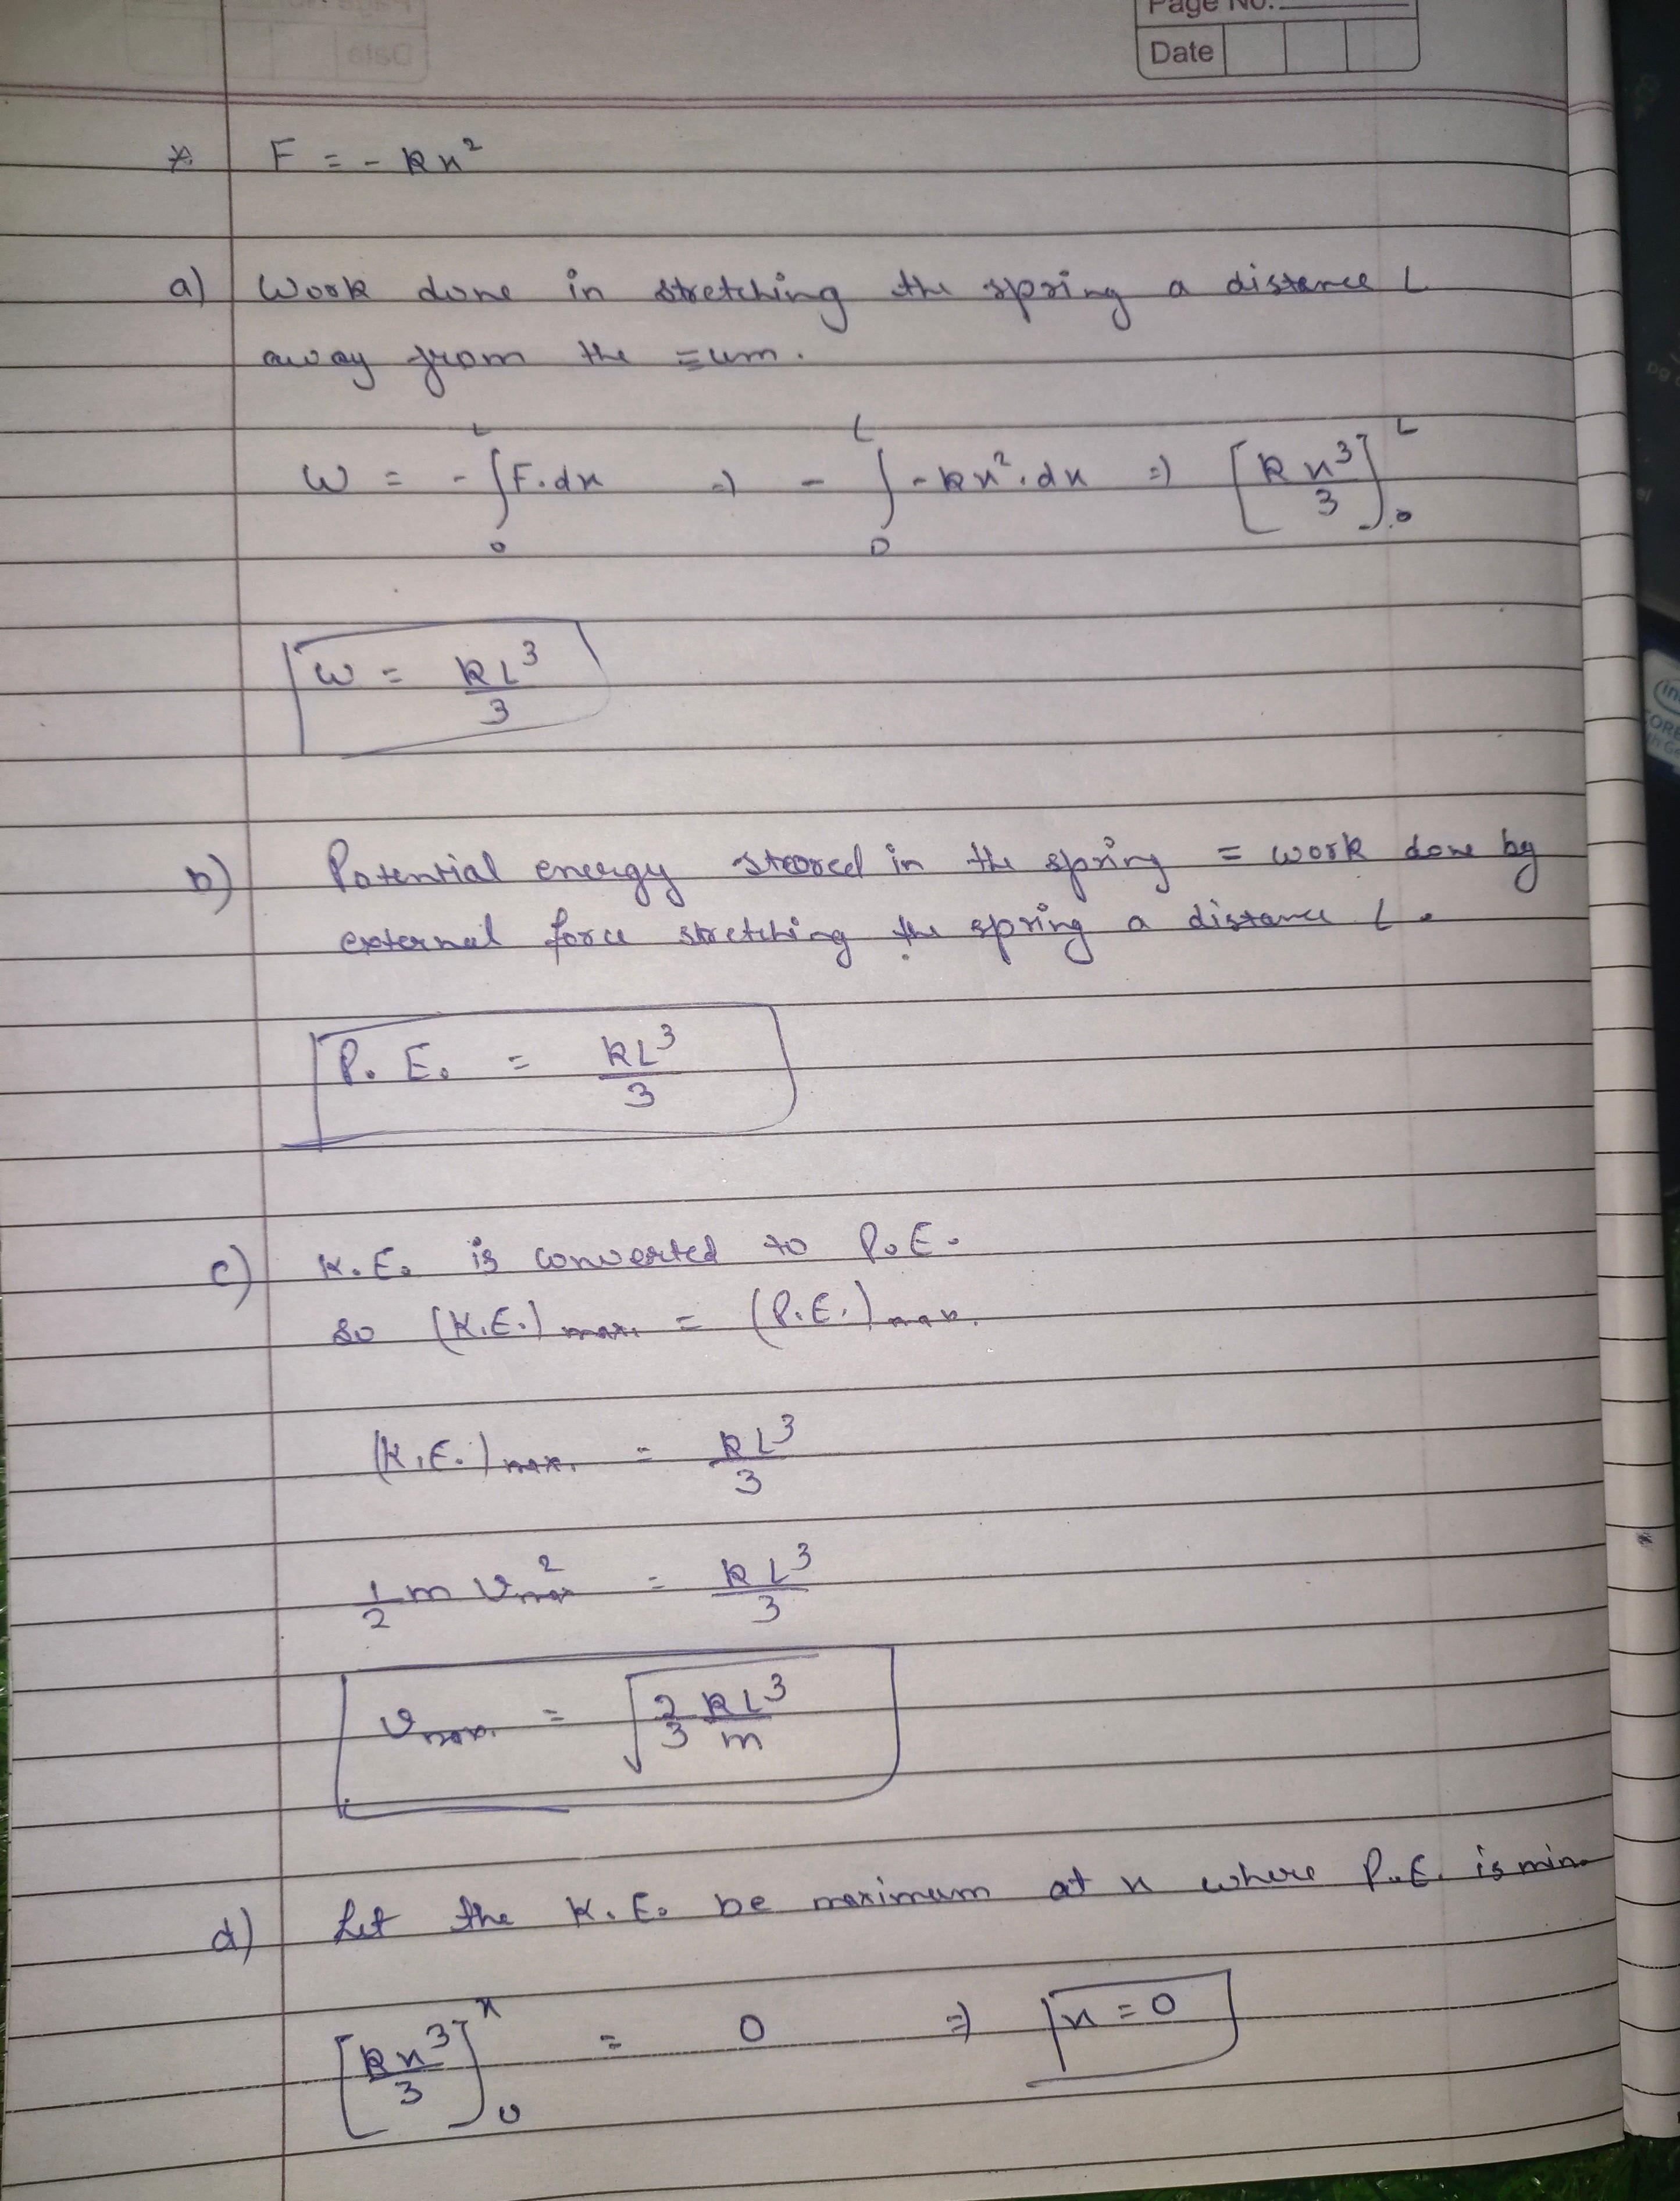 Page No.:
Date
* F = - kx²
a) Work done in stretching the spring a distance L
away from the =um.
W = - ∫₀ᴸ F.dx ⇒ - ∫₀ᴸ -kx².dx ⇒ [kx³/3]₀ᴸ
W = kL³/3
b) Potential energy stored in the spring = work done by
external force stretching the spring a distance L.
P.E. = kL³/3
c) K.E. is converted to P.E.
so (K.E.)max. = (P.E.)max.
(K.E.)max. = kL³/3
1/2 m v²max = kL³/3
vmax. = √(2/3 kL³/m)
d) Let the K.E. be maximum at x where P.E. is min.
[kx³/3]₀ˣ = 0 ⇒ x = 0